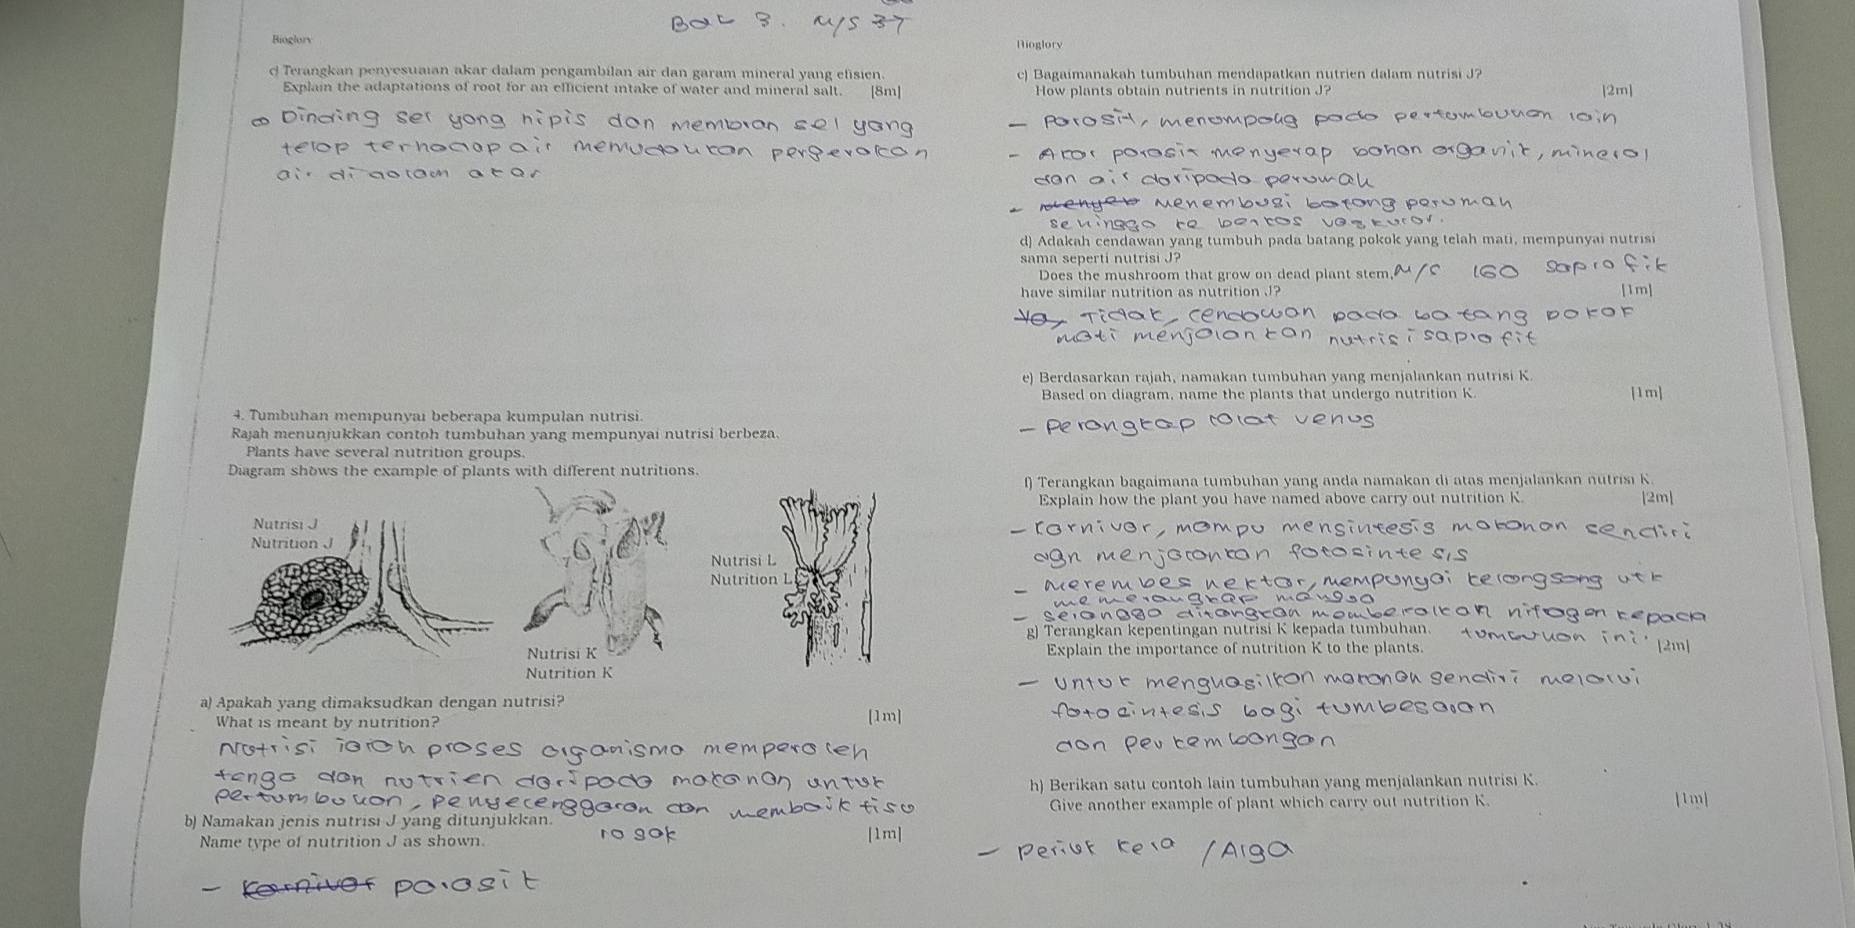 Bab 3. M/S 37
Bioglory
c) Terangkan penyesuaian akar dalam pengambilan air dan garam mineral yang efisien.
Explain the adaptations of root for an efficient intake of water and mineral salt. [8m]
Dinding sel yang nipis dan membran sel yang
telap terhadap air memudahkan pergerakan
air di dalam akar
4. Tumbuhan mempunyai beberapa kumpulan nutrisi.
Rajah menunjukkan contoh tumbuhan yang mempunyai nutrisi berbeza.
Plants have several nutrition groups.
Diagram shows the example of plants with different nutritions.
Nutrisi J
Nutrition J
Nutrisi K
Nutrition K
Nutrisi L
Nutrition L
a) Apakah yang dimaksudkan dengan nutrisi?
What is meant by nutrition? [1m]
Nutrisi ialah proses organisma memperoleh
tenga dan nutrien daripada makanan untuk
pertumbuhan, penyelenggaraan dan membaik tisu
b) Namakan jenis nutrisi J yang ditunjukkan.
Name type of nutrition J as shown. [1m]
- parasit
Bioglory
c) Bagaimanakah tumbuhan mendapatkan nutrien dalam nutrisi J?
How plants obtain nutrients in nutrition J? [2m]
- parasit, menumpang pada pertumbuhan lain
- Akar parasit menyerap bahan organik, mineral
dan air daripada perumah
- Menembusi batang perumah
sehingga ke berkas vaskular.
d) Adakah cendawan yang tumbuh pada batang pokok yang telah mati, mempunyai nutrisi
sama seperti nutrisi J?
Does the mushroom that grow on dead plant stem, M/S 160 saprofit
have similar nutrition as nutrition J? [1m]
Tidak, cendawan pada batang pokok
mati menjalankan nutrisi saprofit
e) Berdasarkan rajah, namakan tumbuhan yang menjalankan nutrisi K.
Based on diagram, name the plants that undergo nutrition K. [1m]
- perangkap lalat venus
f) Terangkan bagaimana tumbuhan yang anda namakan di atas menjalankan nutrisi K.
Explain how the plant you have named above carry out nutrition K. [2m]
- karnivor, mampu mensintesis makanan sendiri
dgn menjalankan fotosintesis
- merembes nektar, mempunyai kelongsong utk
memerangkap mangsa
- serangga ditangkan membekalkan nitrogen kepada
tumbuhan ini.
g) Terangkan kepentingan nutrisi K kepada tumbuhan.
Explain the importance of nutrition K to the plants. [2m]
- Untuk menghasilkan makanan sendiri melalui
fotosintesis bagi tumbesaran
dan perkembangan
h) Berikan satu contoh lain tumbuhan yang menjalankan nutrisi K.
Give another example of plant which carry out nutrition K. [1m]
- periuk kera / Alga